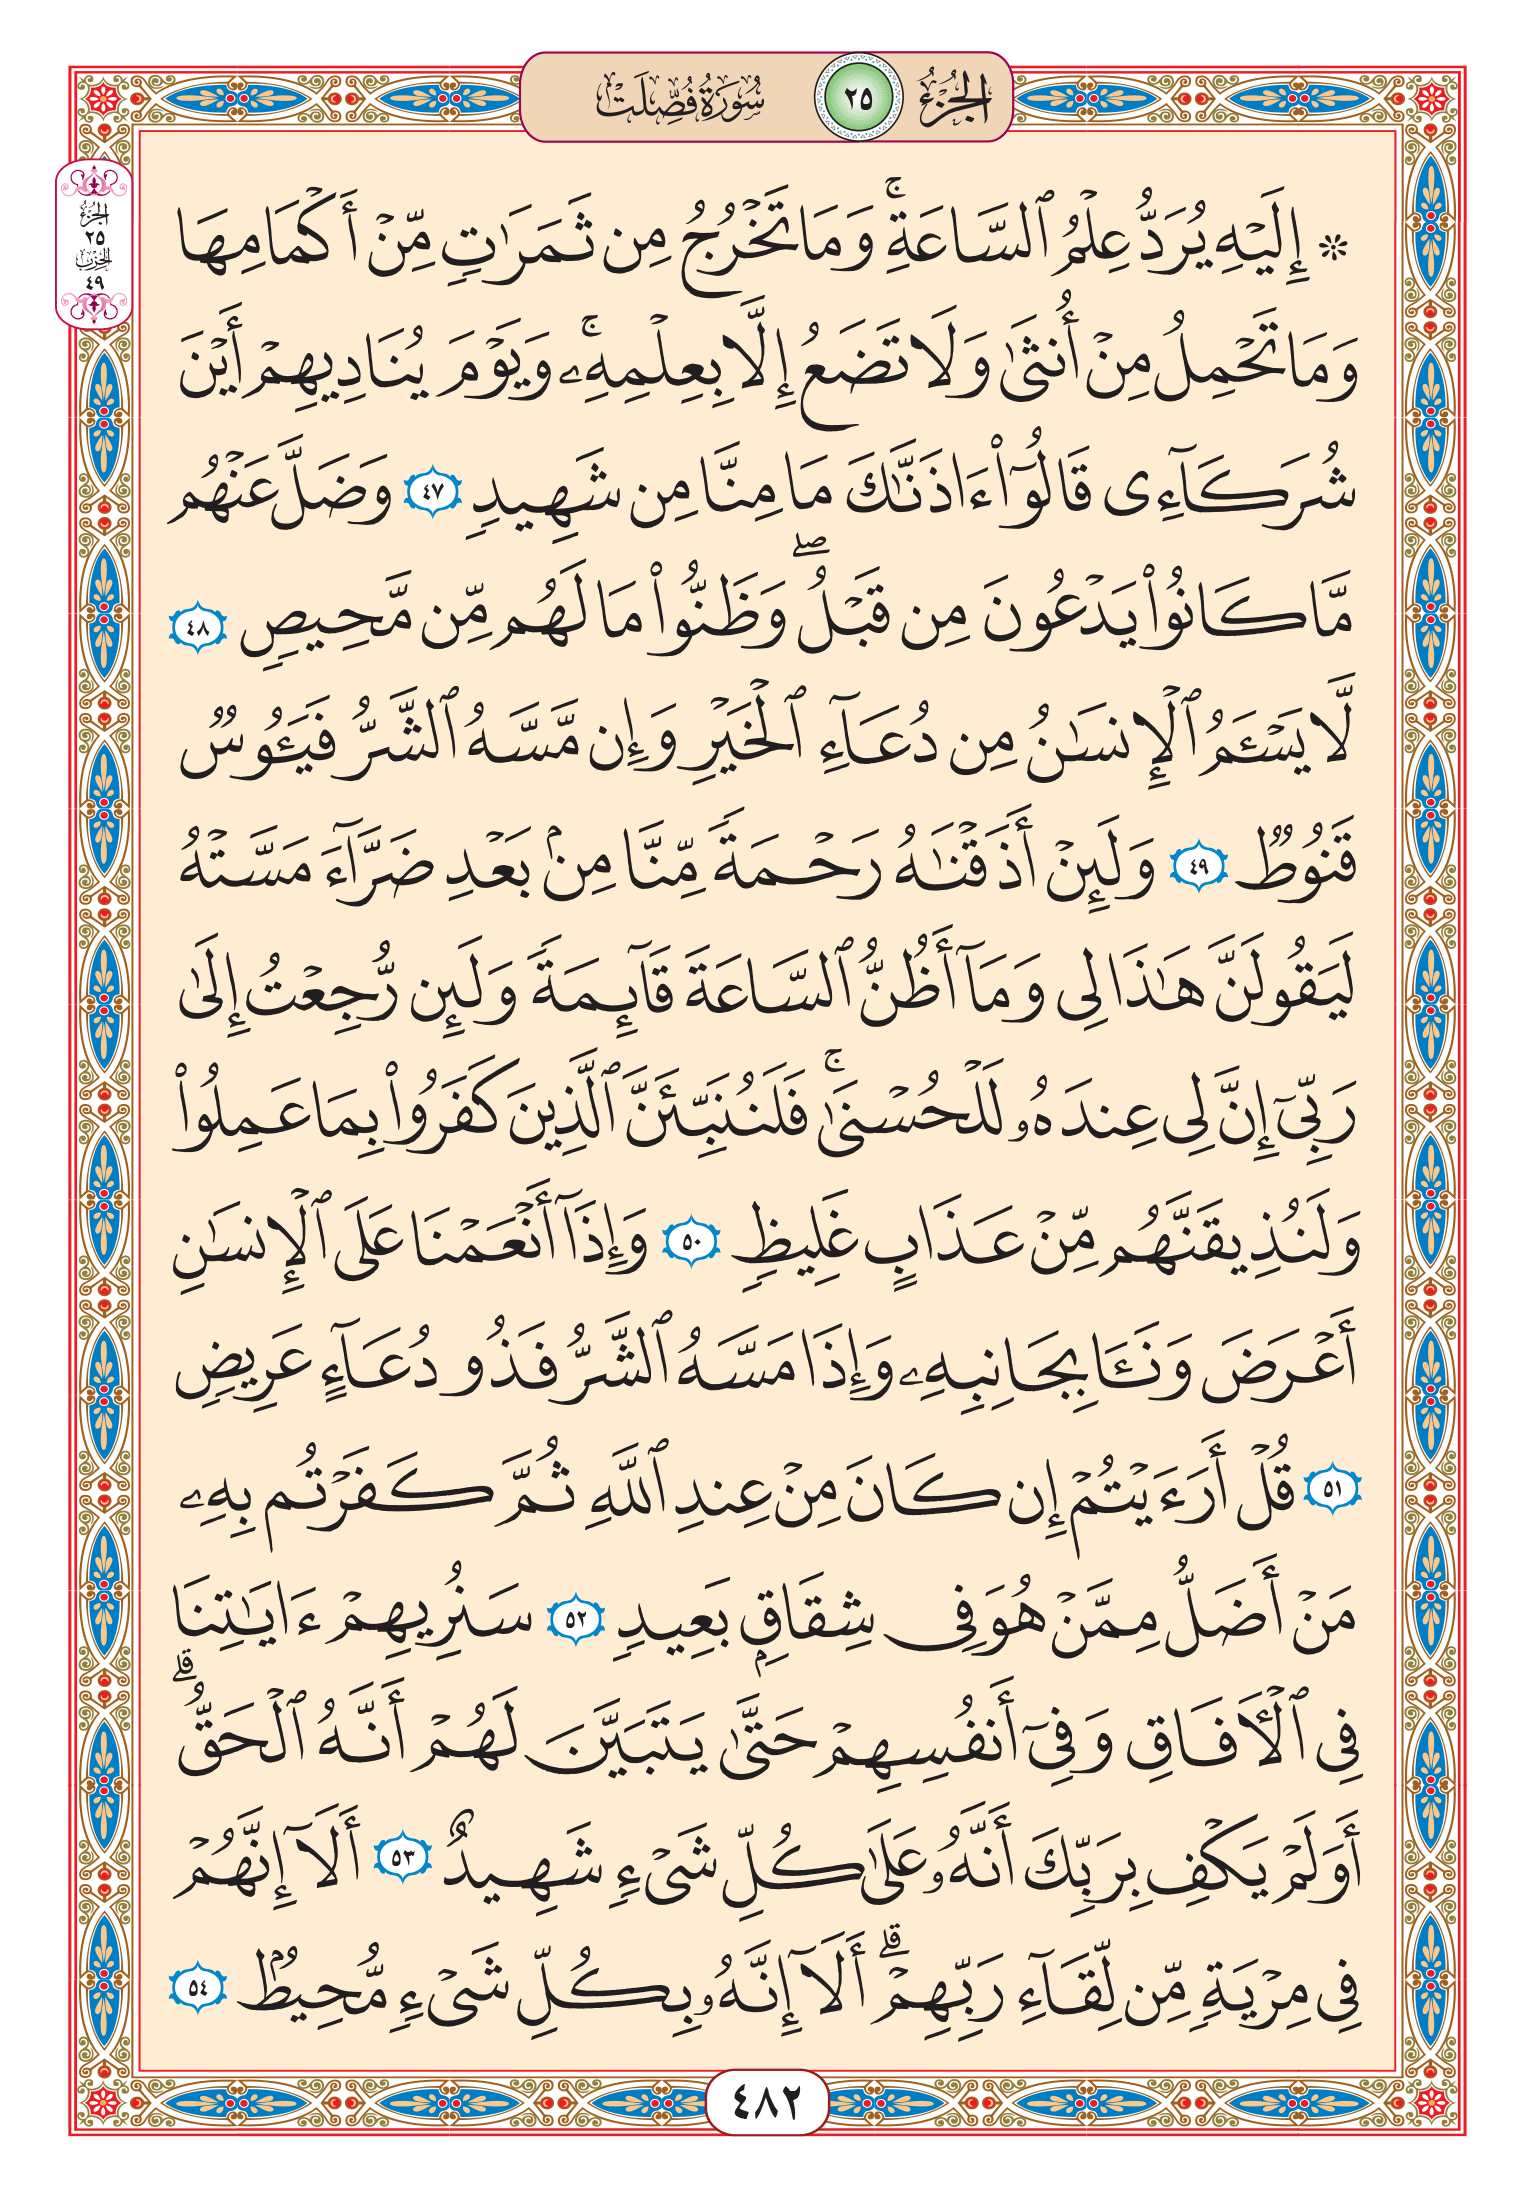 الجزء ٢٥ سورة فصلت
الجزء
٢٥
الحزب
٤٩
۞ إِلَيْهِ يُرَدُّ عِلْمُ ٱلسَّاعَةِۚ وَمَا تَخْرُجُ مِن ثَمَرَٰتٍ مِّنْ أَكْمَامِهَا
وَمَا تَحْمِلُ مِنْ أُنثَىٰ وَلَا تَضَعُ إِلَّا بِعِلْمِهِۦۚ وَيَوْمَ يُنَادِيهِمْ أَيْنَ
شُرَكَآءِى قَالُوٓا۟ ءَاذَنَّٰكَ مَا مِنَّا مِن شَهِيدٍ ٤٧ وَضَلَّ عَنْهُم
مَّا كَانُوا۟ يَدْعُونَ مِن قَبْلُۖ وَظَنُّوا۟ مَا لَهُم مِّن مَّحِيصٍ ٤٨
لَّا يَسْـَٔمُ ٱلْإِنسَٰنُ مِن دُعَآءِ ٱلْخَيْرِ وَإِن مَّسَّهُ ٱلشَّرُّ فَيَـُٔوسٌ
قَنُوطٌ ٤٩ وَلَئِنْ أَذَقْنَٰهُ رَحْمَةً مِّنَّا مِنۢ بَعْدِ ضَرَّآءَ مَسَّتْهُ
لَيَقُولَنَّ هَٰذَا لِى وَمَآ أَظُنُّ ٱلسَّاعَةَ قَآئِمَةً وَلَئِن رُّجِعْتُ إِلَىٰ
رَبِّىٓ إِنَّ لِى عِندَهُۥ لَلْحُسْنَىٰۚ فَلَنُنَبِّئَنَّ ٱلَّذِينَ كَفَرُوا۟ بِمَا عَمِلُوا۟
وَلَنُذِيقَنَّهُم مِّنْ عَذَابٍ غَلِيظٍ ٥٠ وَإِذَآ أَنْعَمْنَا عَلَى ٱلْإِنسَٰنِ
أَعْرَضَ وَنَـَٔا بِجَانِبِهِۦ وَإِذَا مَسَّهُ ٱلشَّرُّ فَذُو دُعَآءٍ عَرِيضٍ
٥١ قُلْ أَرَءَيْتُمْ إِن كَانَ مِنْ عِندِ ٱللَّهِ ثُمَّ كَفَرْتُم بِهِۦ
مَنْ أَضَلُّ مِمَّنْ هُوَ فِى شِقَاقٍۭ بَعِيدٍ ٥٢ سَنُرِيهِمْ ءَايَٰتِنَا
فِى ٱلْـَٔافَاقِ وَفِىٓ أَنفُسِهِمْ حَتَّىٰ يَتَبَيَّنَ لَهُمْ أَنَّهُ ٱلْحَقُّۗ
أَوَلَمْ يَكْفِ بِرَبِّكَ أَنَّهُۥ عَلَىٰ كُلِّ شَىْءٍ شَهِيدٌ ٥٣ أَلَآ إِنَّهُمْ
فِى مِرْيَةٍ مِّن لِّقَآءِ رَبِّهِمْۗ أَلَآ إِنَّهُۥ بِكُلِّ شَىْءٍ مُّحِيطٌۢ ٥٤
٤٨٢